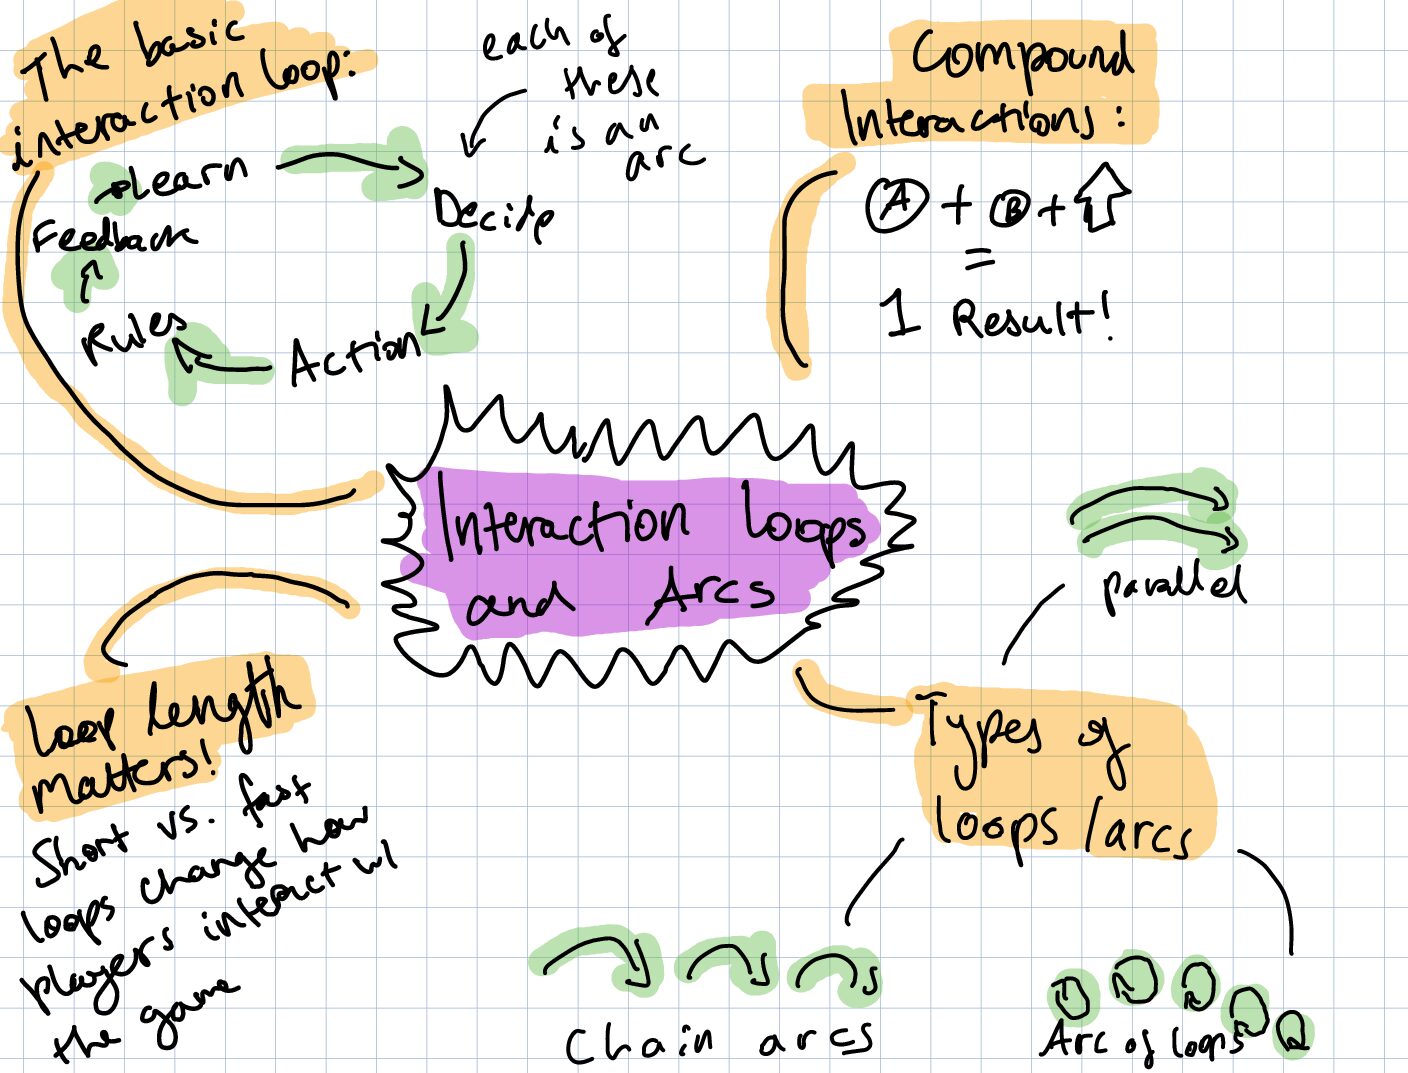 The basic
interaction loop:
Learn
Decide
Action
Rules
Feedback
each of
these
is an
arc
Compound
Interactions:
A + B +
=
1 Result!
Interaction Loops
and Arcs
Loop length
matters!
Short vs. fast
loops change how
players interact w/
the game
Types of
loops/arcs
parallel
Chain arcs
Arc of loops